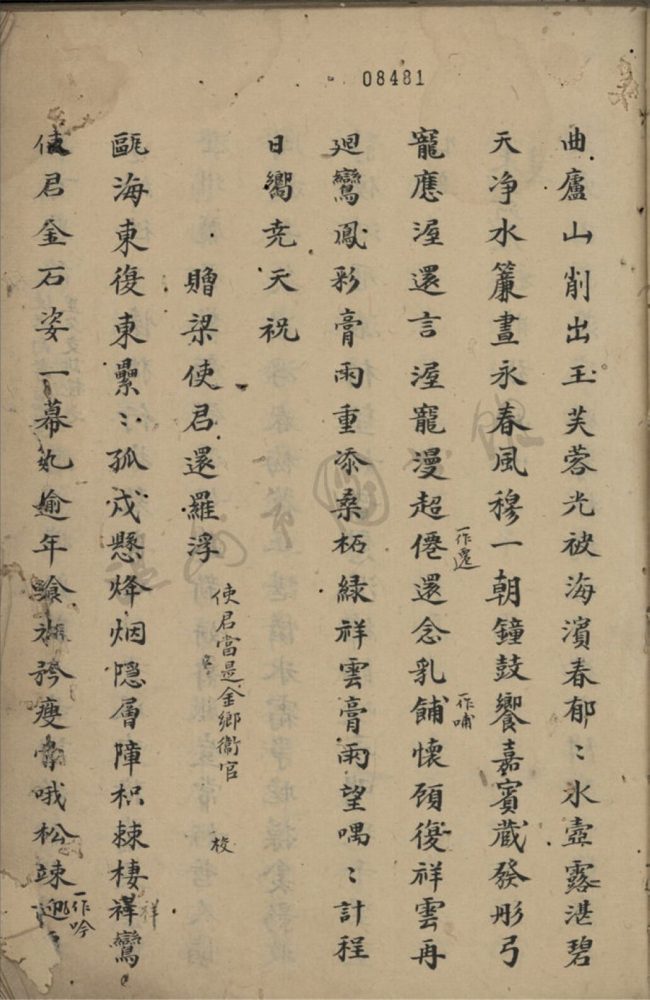 08481
曲廬山削出玉芙蓉光被海濱春郁〻氷壺露湛碧
天净水簾晝永春風穆一朝鐘鼓饗嘉賓蔵發彤弓
寵應渥還言渥寵漫超僊一作遷還念乳餔一作哺懷顧復祥雲再
廻鸞鳳彩膏雨重添桑柘緑祥雲膏雨望喁〻計程
日嚮尭天祝
贈梁使君還羅浮使君當是金鄉衞官 挍
甌海東復東纍〻孤戍懸烽烟隠層障枳棘棲祥鸞祥
使君金石姿一幕逾年矜瘦常哦松竦一作吟